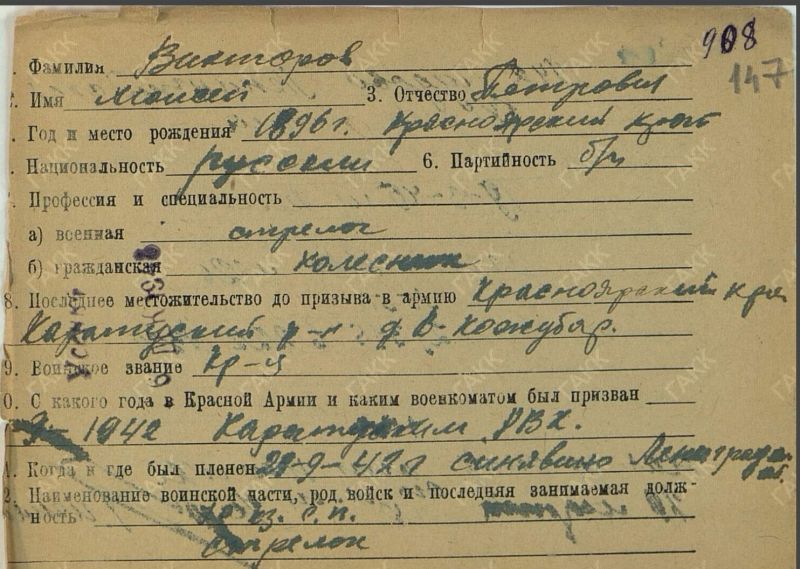 908
147
. Фамилия Викторов
. Имя Моисей 3. Отчество Петрович
. Год и место рождения 1896 г. Красноярский край
. Национальность русский 6. Партийность б/п
. Профессия и специальность
а) военная стрелок
б) гражданская колесник
8. Последнее местожительство до призыва в армию Красноярский край
Каратузский р-н д. В-Кожубар.
9. Воинское звание кр-ц
0. С какого года в Красной Армии и каким военкоматом был призван
1942 Каратузским РВК.
1. Когда и где был пленен 29-9-42 г Синявино Ленинград.
2. Наименование воинской части, род войск и последняя занимаемая долж-
ность с.п.
стрелок